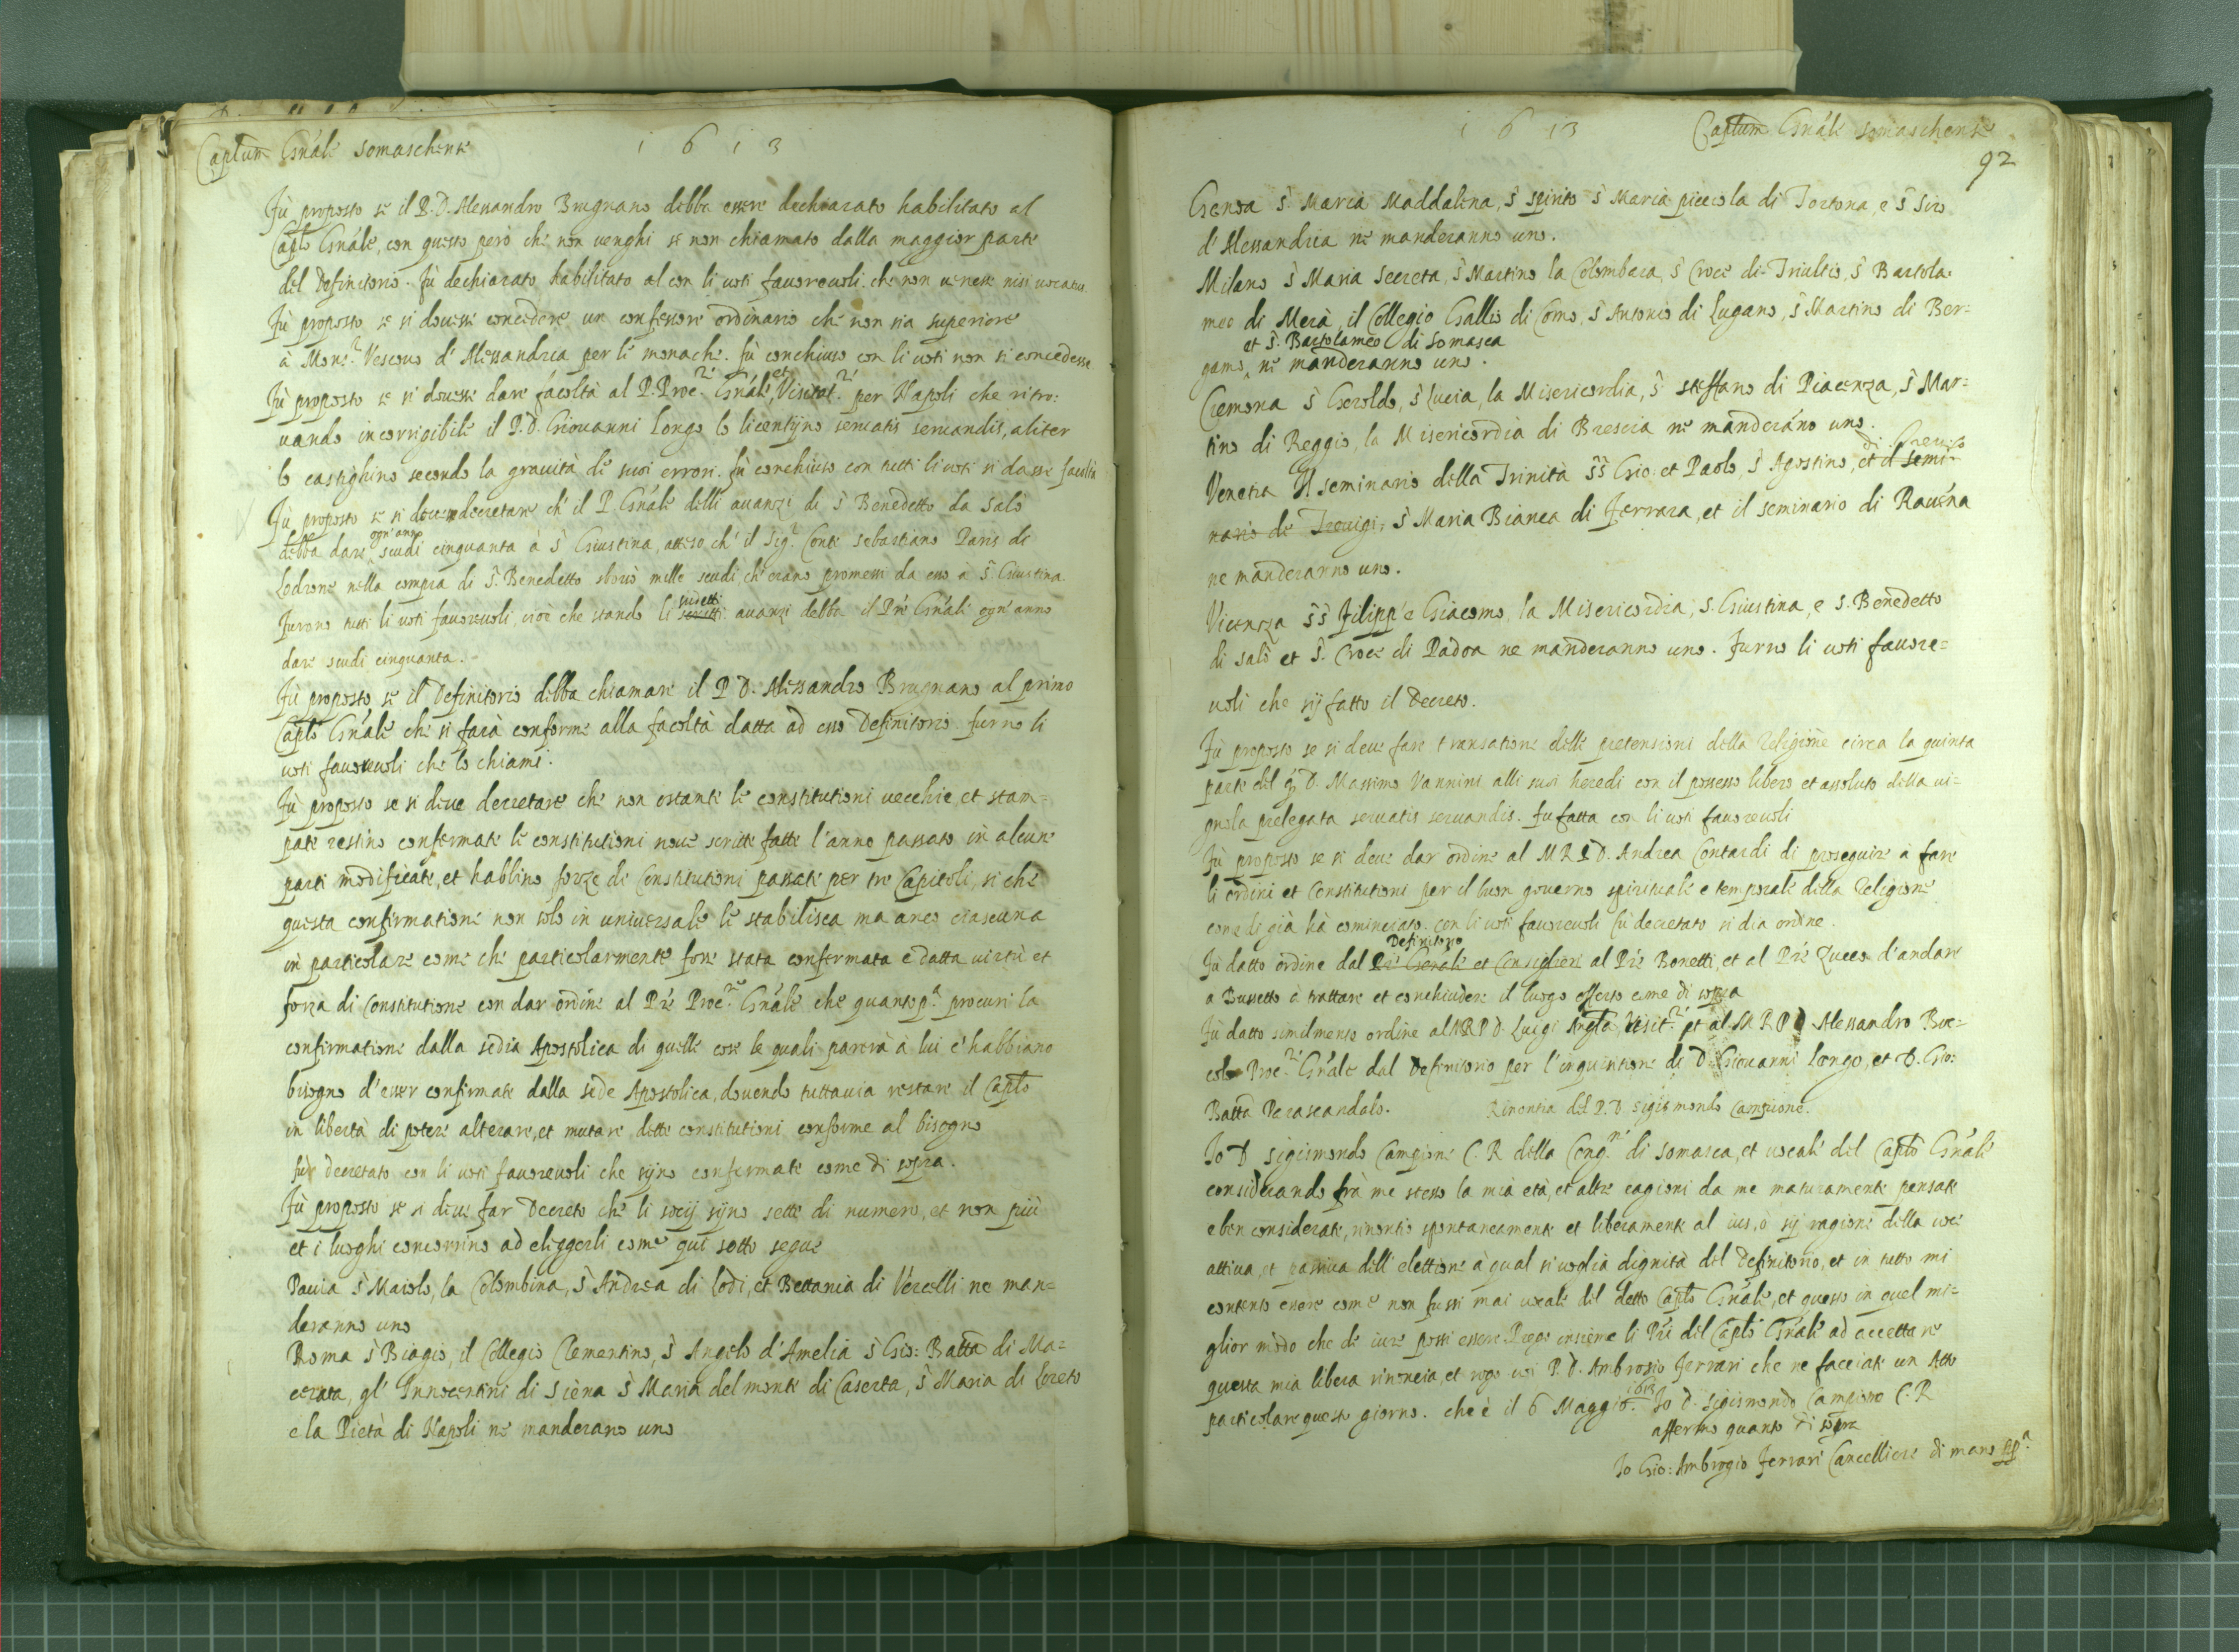 Captum Gnále Somaschense
1613
Fù proposto se il P. D. Alessandro Brugnano debba essere dechiarato habilitato al
Caplo Gnále, con questo però che non uenghi se non chiamato dalla maggior parte
del Definitorio. Fù dechiarato habilitato al con li uoti fauoreuoli che non uenesse nisi uocatus
Fù proposto se si douesse concedere un confessore ordinario che non sia superiore
à Mons.r Vescouo d'Alessandria per le monache. fù conchiuso con li uoti non si concedesse
Fù proposto se si douesse dare fácoltà al P. Proc.re Gnále, et Visitat.re per Napoli che ritro:
uando incorrigibile il P. D. Giouanni Longo lo licentijno seruatis seruandis, aliter
lo castighino secondo la grauità de suoi errori. fù conchiuso con tutti li uoti si dasse facultà
Fù proposto se si deue decretare ch'il P. Gnále delli auanzi di S Benedetto da Salò
debba dare ogn'anno scudi cinquanta à S Giustina, atteso ch'il Sig.r Conte Sebastiano Paris di
Lodrone nella compra di S. Benedetto sborsò mille scudi, ch'erano promessi da esso à S. Giustina
Furono tutti li uoti fauoreuoli, cioè che stando li sudetti auanzi debba il Pre Gnále ogn'anno
dare scudi cinquanta.
Fù proposto se il Definitorio debba chiamare il P. D. Alessandro Brugnano al primo
Caplo Gnále che si farà conforme alla facoltà datta ad esso Definitorio. furno li
uoti fauoreuoli che lo chiami.
Fù proposto se si deue decretare che non ostante le constitutioni uecchie, et stam=
pate restino confermate le constitutioni noue scritte fatte l'anno passato in alcune
parti modificate, et habbino forze di Constitutioni passate per tre Capitoli, si che
questa confirmatione non solo in uniuersale le stabilisca ma anco ciascuna
in particolare come che particolarmente fosse stata confermata e datta uirtù et
forza di Constitutione con dar ordine al Pre Proc.re Gnále che quanto p.a procuri la
confirmatione dalla sedia Apostolica di quelle cose le quali parerà à lui c'habbiano
bisogno d'esser confirmate dalla sede Apostolica, douendo tuttauia restare il Caplo
in libertà di poter alterare, et mutare dette constitutioni conforme al bisogno
fù decretato con li uoti fauoreuoli che sijno confermate come di sopra.
Fù proposto se si deue far Decreto che li socij sijno sette di numero, et non più
et i luoghi concorrino ad eliggerli come qui sotto segue
Pauia S Maiolo, la Colombina, S Andrea di Lodi, et Bettania di Vercelli ne man=
deranno uno
Roma S Biagio, il Collegio Clementino, S Angelo d'Amelia S Gio: Batta di Ma=
cerata, gl'Innocentini di Siena S Maria del monte di Caserta, S Maria di Loreto
e la Pietà di Napoli ne manderano uno
1613
Captum Gnále Somaschense
92
Genoa S. Maria Maddalena, S Spirito S Maria piccola di Tortona, e S Siro
d'Alessandria ne manderanno uno.
Milano S Maria Secreta, S Martino la Colombara, S Croce di Triultio, S Bartola:
meo di Merà, il Collegio Gallio di Como, S Antonio di Lugano, S Martino di Ber:
et S. Bartolameo di Somasca
gamo, ne manderanno uno.
Cremona S Geroldo, S Lucia, la Misericordia, S Steffano di Piacenza, S Mar:
tino di Reggio, la Misericordia di Brescia ne manderáno uno.
Venetia Il seminario della Trinità SS Gio: et Paolo, S Agostino, di Treuiso et il semi=
nario de Treuigi, S Maria Bianca di Ferrara, et il seminario di Rauéna
ne manderanno uno.
Vicenza SS Filipp'e Giacomo, la Misericordia, S. Giustina, e S. Benedetto
di Salò et S. Croce di Padoa ne manderanno uno. Furno li uoti fauore=
uoli che sij fatto il Decreto.
Fù proposto se si deue fare transatione delle pretensioni della Religione circa la quinta
parte del q. D. Massimo Vannini alli suoi heredi con il possesso libero et assoluto della ui=
gnola prelegata seruatis seruandis. fu fatta con li uoti fauoreuoli
Fù proposto se si deue dar ordine al M R P D. Andrea Contardi di proseguire à fare
li ordini et Constitutioni per il buon gouerno spirituale e temporale della Religione
come di già hà cominciato. con li uoti fauoreuoli fù decretato si dia ordine.
Definitorio
Fù datto ordine dal Pre Gerale et Consiglieri al Pre Bonetti, et al Pre Zucco d'andare
a Bussetto à trattare et conchiudere il luogo offerto come di sopra
Fù datto similmente ordine al M R P D. Luigi Angta Visit.re et al M R P D Alessandro Boc=
colo Proc.re Gnále dal Definitorio per l'inquisitione di D. Giouanni Longo, et D. Gio:
Batta Perascandalo. Rinontia del P. D Sigismondo Campione.
Io D Sigismondo Campione C. R della Cong.ne di Somasca, et uocale del Caplo Gnále
considerando frà me stesso la mia età, et altre cagioni da me maturamente pensate
e ben considerate, rinontio spontaneamente et liberamente al ius, ò sij ragione della uoce
attiua, et passiua dell'elettione à qual si uoglia dignità del Definitorio, et in tutto mi
contento essere come non fussi mai uocale del detto Caplo Gnále, et questo in quel mi=
glior modo che de iure possi essere. Prego insieme li Pri del Caplo Gnále ad accettare
questa mia libera rinoncia, et rogo uoi P. D. Ambrosio Ferrari che ne facciate un Atto
particolare questo giorno. che è il 6 Maggio. 1613 Io D. Sigismondo Campione C. R
affermo quanto di sopra
Io Gio: Ambrogio Ferrari Cancelliere di mano pp.a